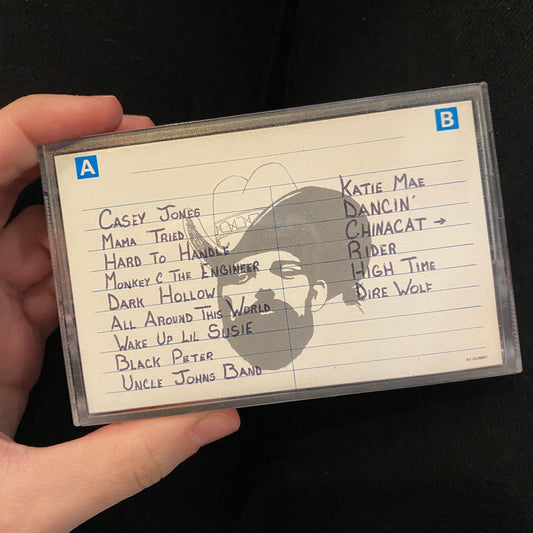 A
B
CASEY JONES
MAMA TRIED
HARD TO HANDLE
MONKEY & THE ENGINEER
DARK HOLLOW
ALL AROUND THIS WORLD
WAKE UP LIL SUSIE
BLACK PETER
UNCLE JOHNS BAND
KATIE MAE
DANCIN'
CHINACAT →
RIDER
HIGH TIME
DIRE WOLF